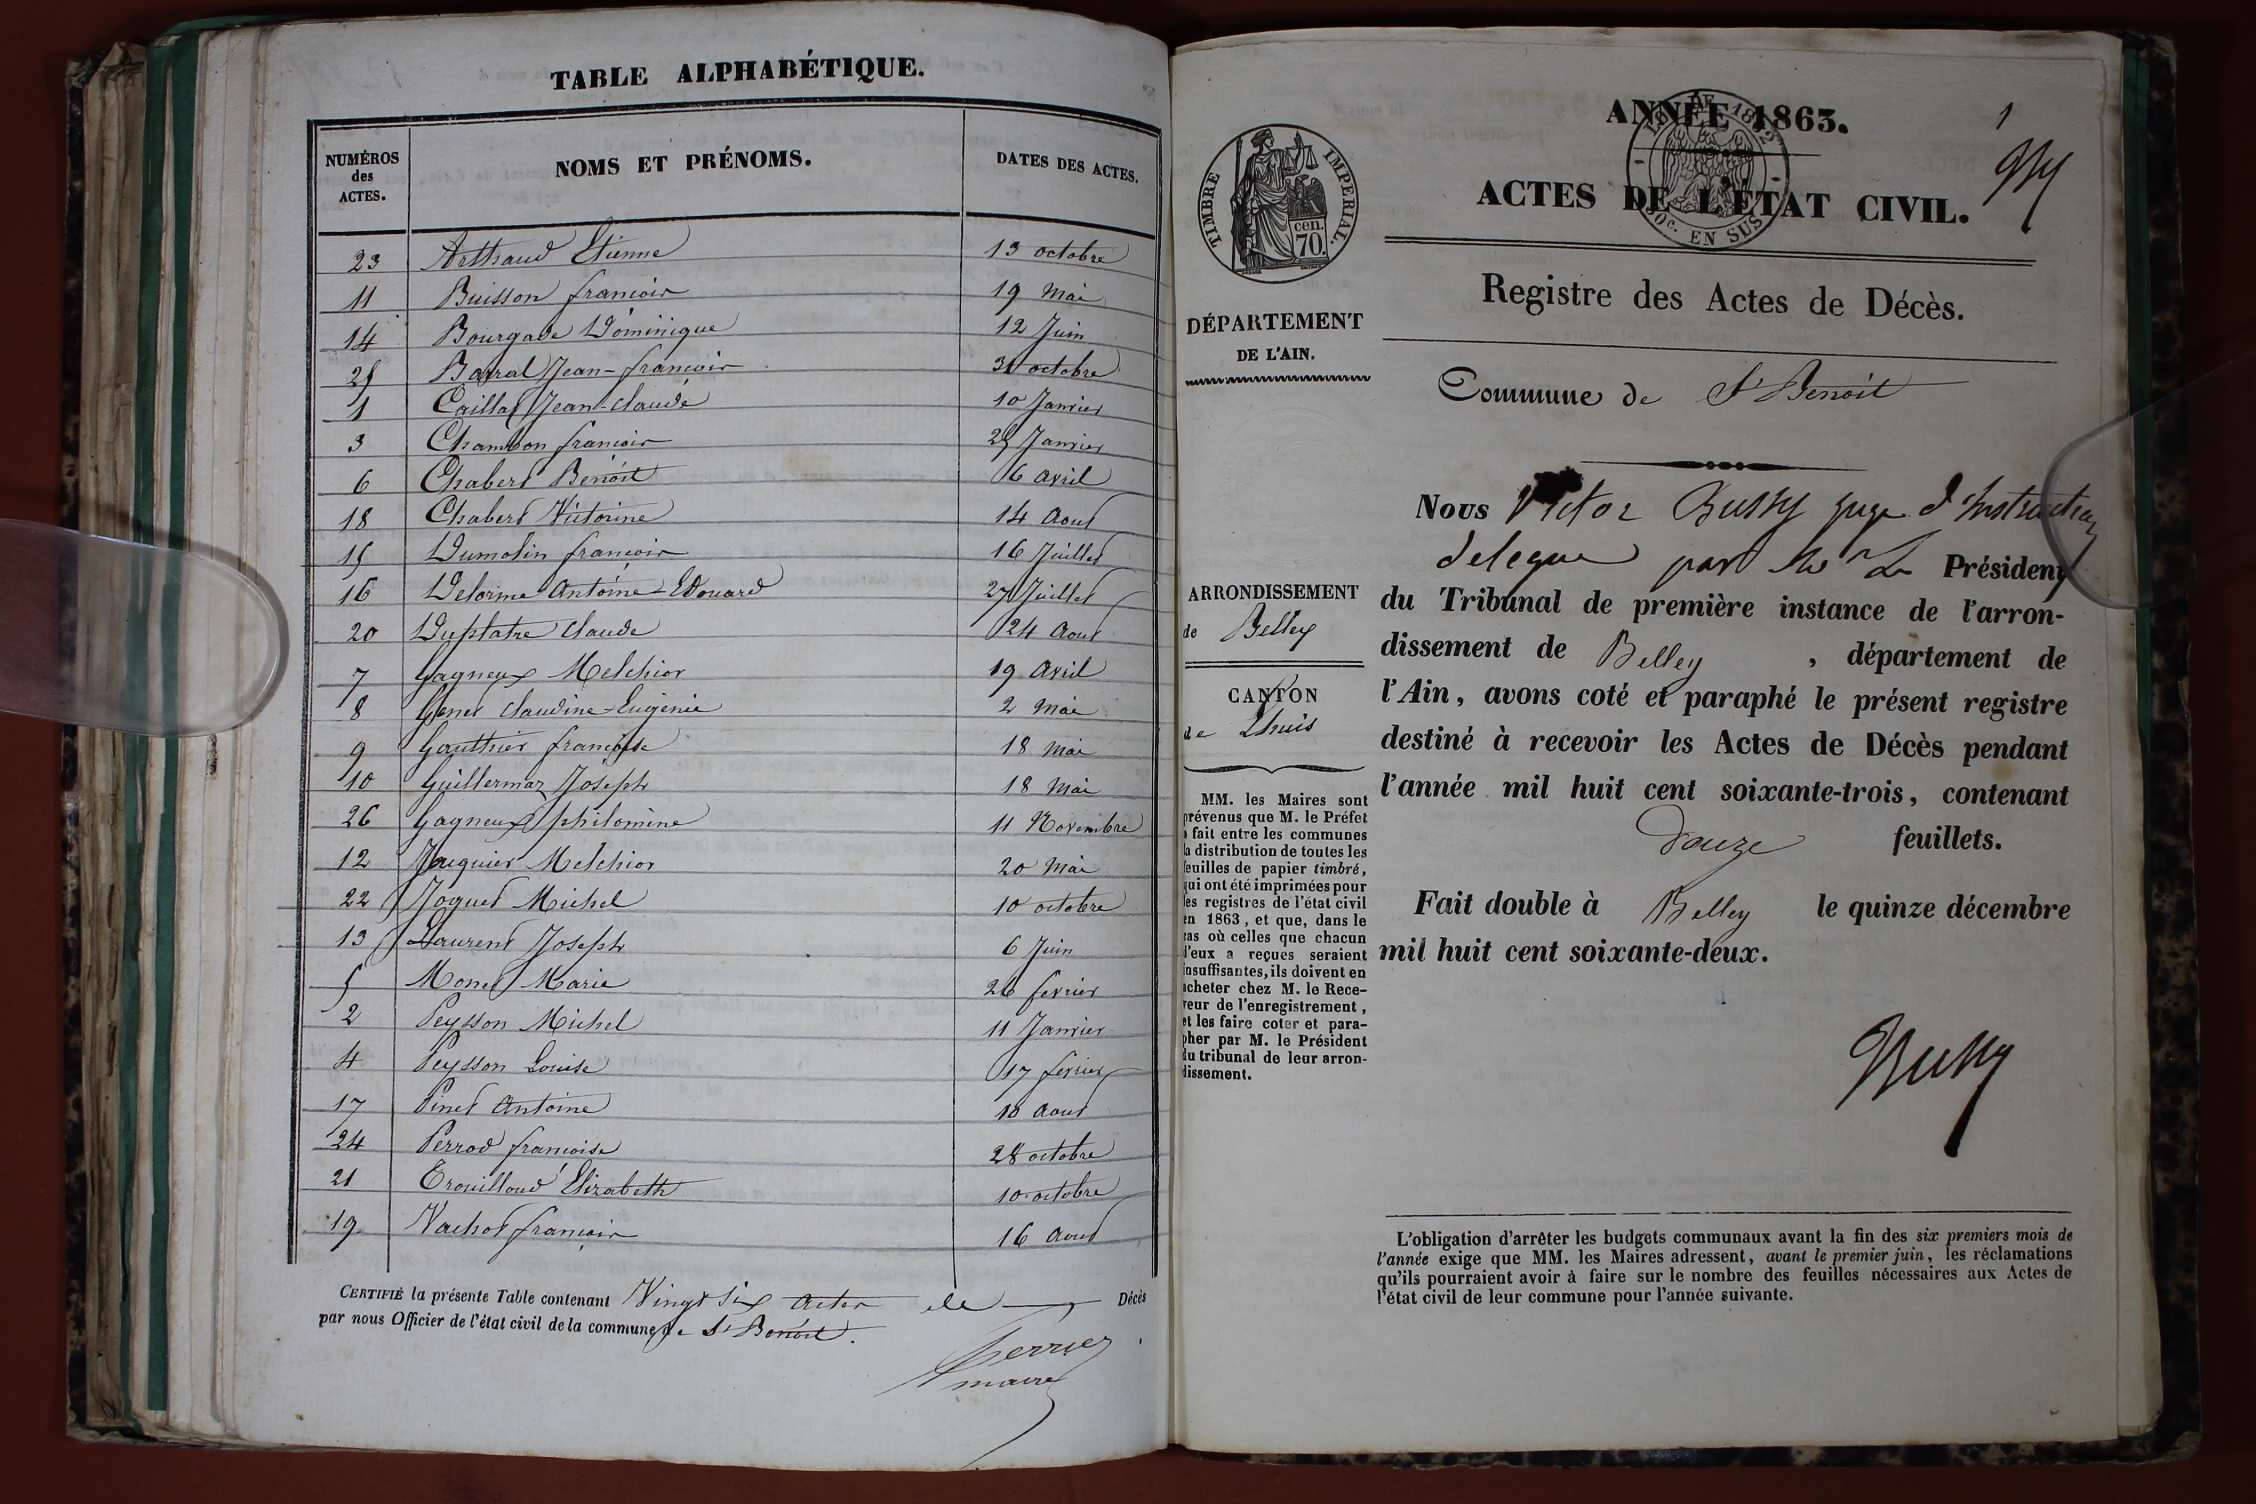 TABLE ALPHABÉTIQUE.
NUMÉROS des ACTES. NOMS ET PRÉNOMS. DATES DES ACTES.
23 Arthaud Etienne 13 octobre
11 Buisson françois 19 Mai
14 Bourgade Dominique 12 Juin
25 Barral Jean-françois 31 octobre
1 Caillat Jean-Claude 10 Janvier
3 Chambon françois 25 Janvier
6 Chabert Benoit 6 avril
18 Chabert Victorine 14 Aout
15 Dumolin françois 16 Juillet
16 Delorme Antoine-Edouard 27 Juillet
20 Duplatre Claude 24 Aout
7 Gagneux Melchior 19 Avril
8 Genet Claudine-Eugénie 2 Mai
9 Gauthier françoise 18 Mai
10 Guillermaz Joseph 18 Mai
26 Gagneux philomine 11 Novembre
12 Jauquier Melchior 20 Mai
22 Joguet Michel 10 octobre
13 Laurent Joseph 6 Juin
5 Monet Marie 26 fevrier
2 Peysson Michel 11 Janvier
4 Peysson Louise 17 fevrier
17 Pinet Antoine 10 Aout
24 Perrod françoise 28 octobre
21 Trouilloud Elizabeth 10 octobre
19 Vachot françois 16 Aout
CERTIFIÉ la présente Table contenant Vingt six actes de Décès
par nous Officier de l'état civil de la commune de St Benoit.
Perrier
maire
1
ANNÉE 1863.
ACTES DE L'ÉTAT CIVIL.
LOI DE 1862
10c. EN SUS
TIMBRE IMPERIAL.
70. cen.
Registre des Actes de Décès.
DÉPARTEMENT
DE L'AIN.
Commune de St Benoit
Nous Victor Bussy juge d'Instruction
delegue par Mr Le Président
du Tribunal de première instance de l'arron-
dissement de Belley, département de
l'Ain, avons coté et paraphé le présent registre
destiné à recevoir les Actes de Décès pendant
l'année mil huit cent soixante-trois, contenant
douze feuillets.
Fait double à Belley le quinze décembre
mil huit cent soixante-deux.
Bussy
ARRONDISSEMENT
de Belley
CANTON
de Lhuis
MM. les Maires sont
prévenus que M. le Préfet
a fait entre les communes
la distribution de toutes les
feuilles de papier timbré,
qui ont été imprimées pour
les registres de l'état civil
en 1863, et que, dans le
cas où celles que chacun
d'eux a reçues seraient
insuffisantes, ils doivent en
acheter chez M. le Rece-
veur de l'enregistrement,
et les faire coter et para-
pher par M. le Président
du tribunal de leur arron-
dissement.
L'obligation d'arrêter les budgets communaux avant la fin des six premiers mois de
l'année exige que MM. les Maires adressent, avant le premier juin, les réclamations
qu'ils pourraient avoir à faire sur le nombre des feuilles nécessaires aux Actes de
l'état civil de leur commune pour l'année suivante.